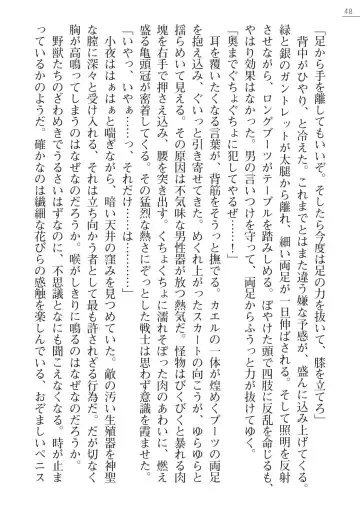 48
「足から手を離してもいいぞ。そしたら今度は足の力を抜いて、膝を立てろ」
背中がひやり、と冷えた。これまでとはまた違う嫌な予感が、盛んに込み上げてくる。
緑と銀のガントレットが太腿から離れ、細い両足が一旦伸ばされる。そして照明を反射
させながら、ロングブーツがテーブルを踏みしめる。ぼやけた頭で四肢に反乱を命じるも、
やはり効果はなかった。男の言いつけを守って、両足からふうっと力が抜けてゆく。
「奥までぐちょぐちょに犯してやるぜ…！」
耳を覆いたくなる言葉が、背筋をそうっと撫でる。カエルの一体が煌めくブーツの両足
を抱え込み、ぐいっと引き寄せてきた。めくれ上がったスカートの向こうが、ゆらゆらと
揺らめいて見える。その原因は不気味な男性器が放つ熱気だ。怪物はびくびくと暴れる肉
塊を右手で押さえ込み、腰を突き出す。くちょくちょに濡れそぼった肉のあわいに、燃え
盛る亀頭冠が密着してくる。その猛烈な熱さにぞっとした戦士は思わず意識を尖らせた。
「いやっ、いやぁ……っ、それだけ……は……っ」
小夜ははぁはぁと喘ぎながら、暗い天井の窪みを見つめていた。敵の汚い生殖器を神聖
な膣に深々と受け入れる、それは立ち向かう者として最も許されざる行為だ。だが切なく
胸が高鳴ってしまうのはなぜなのだろうか。喉がしきりに鳴るのはなぜなのだろうか。
野獣たちのざわめきでうるさいはずなのに、不思議となにも聞こえなくなる。時が止ま
っているかのようだ。確かなのは繊細な花びらの感触を楽しんでいる、おぞましいペニス